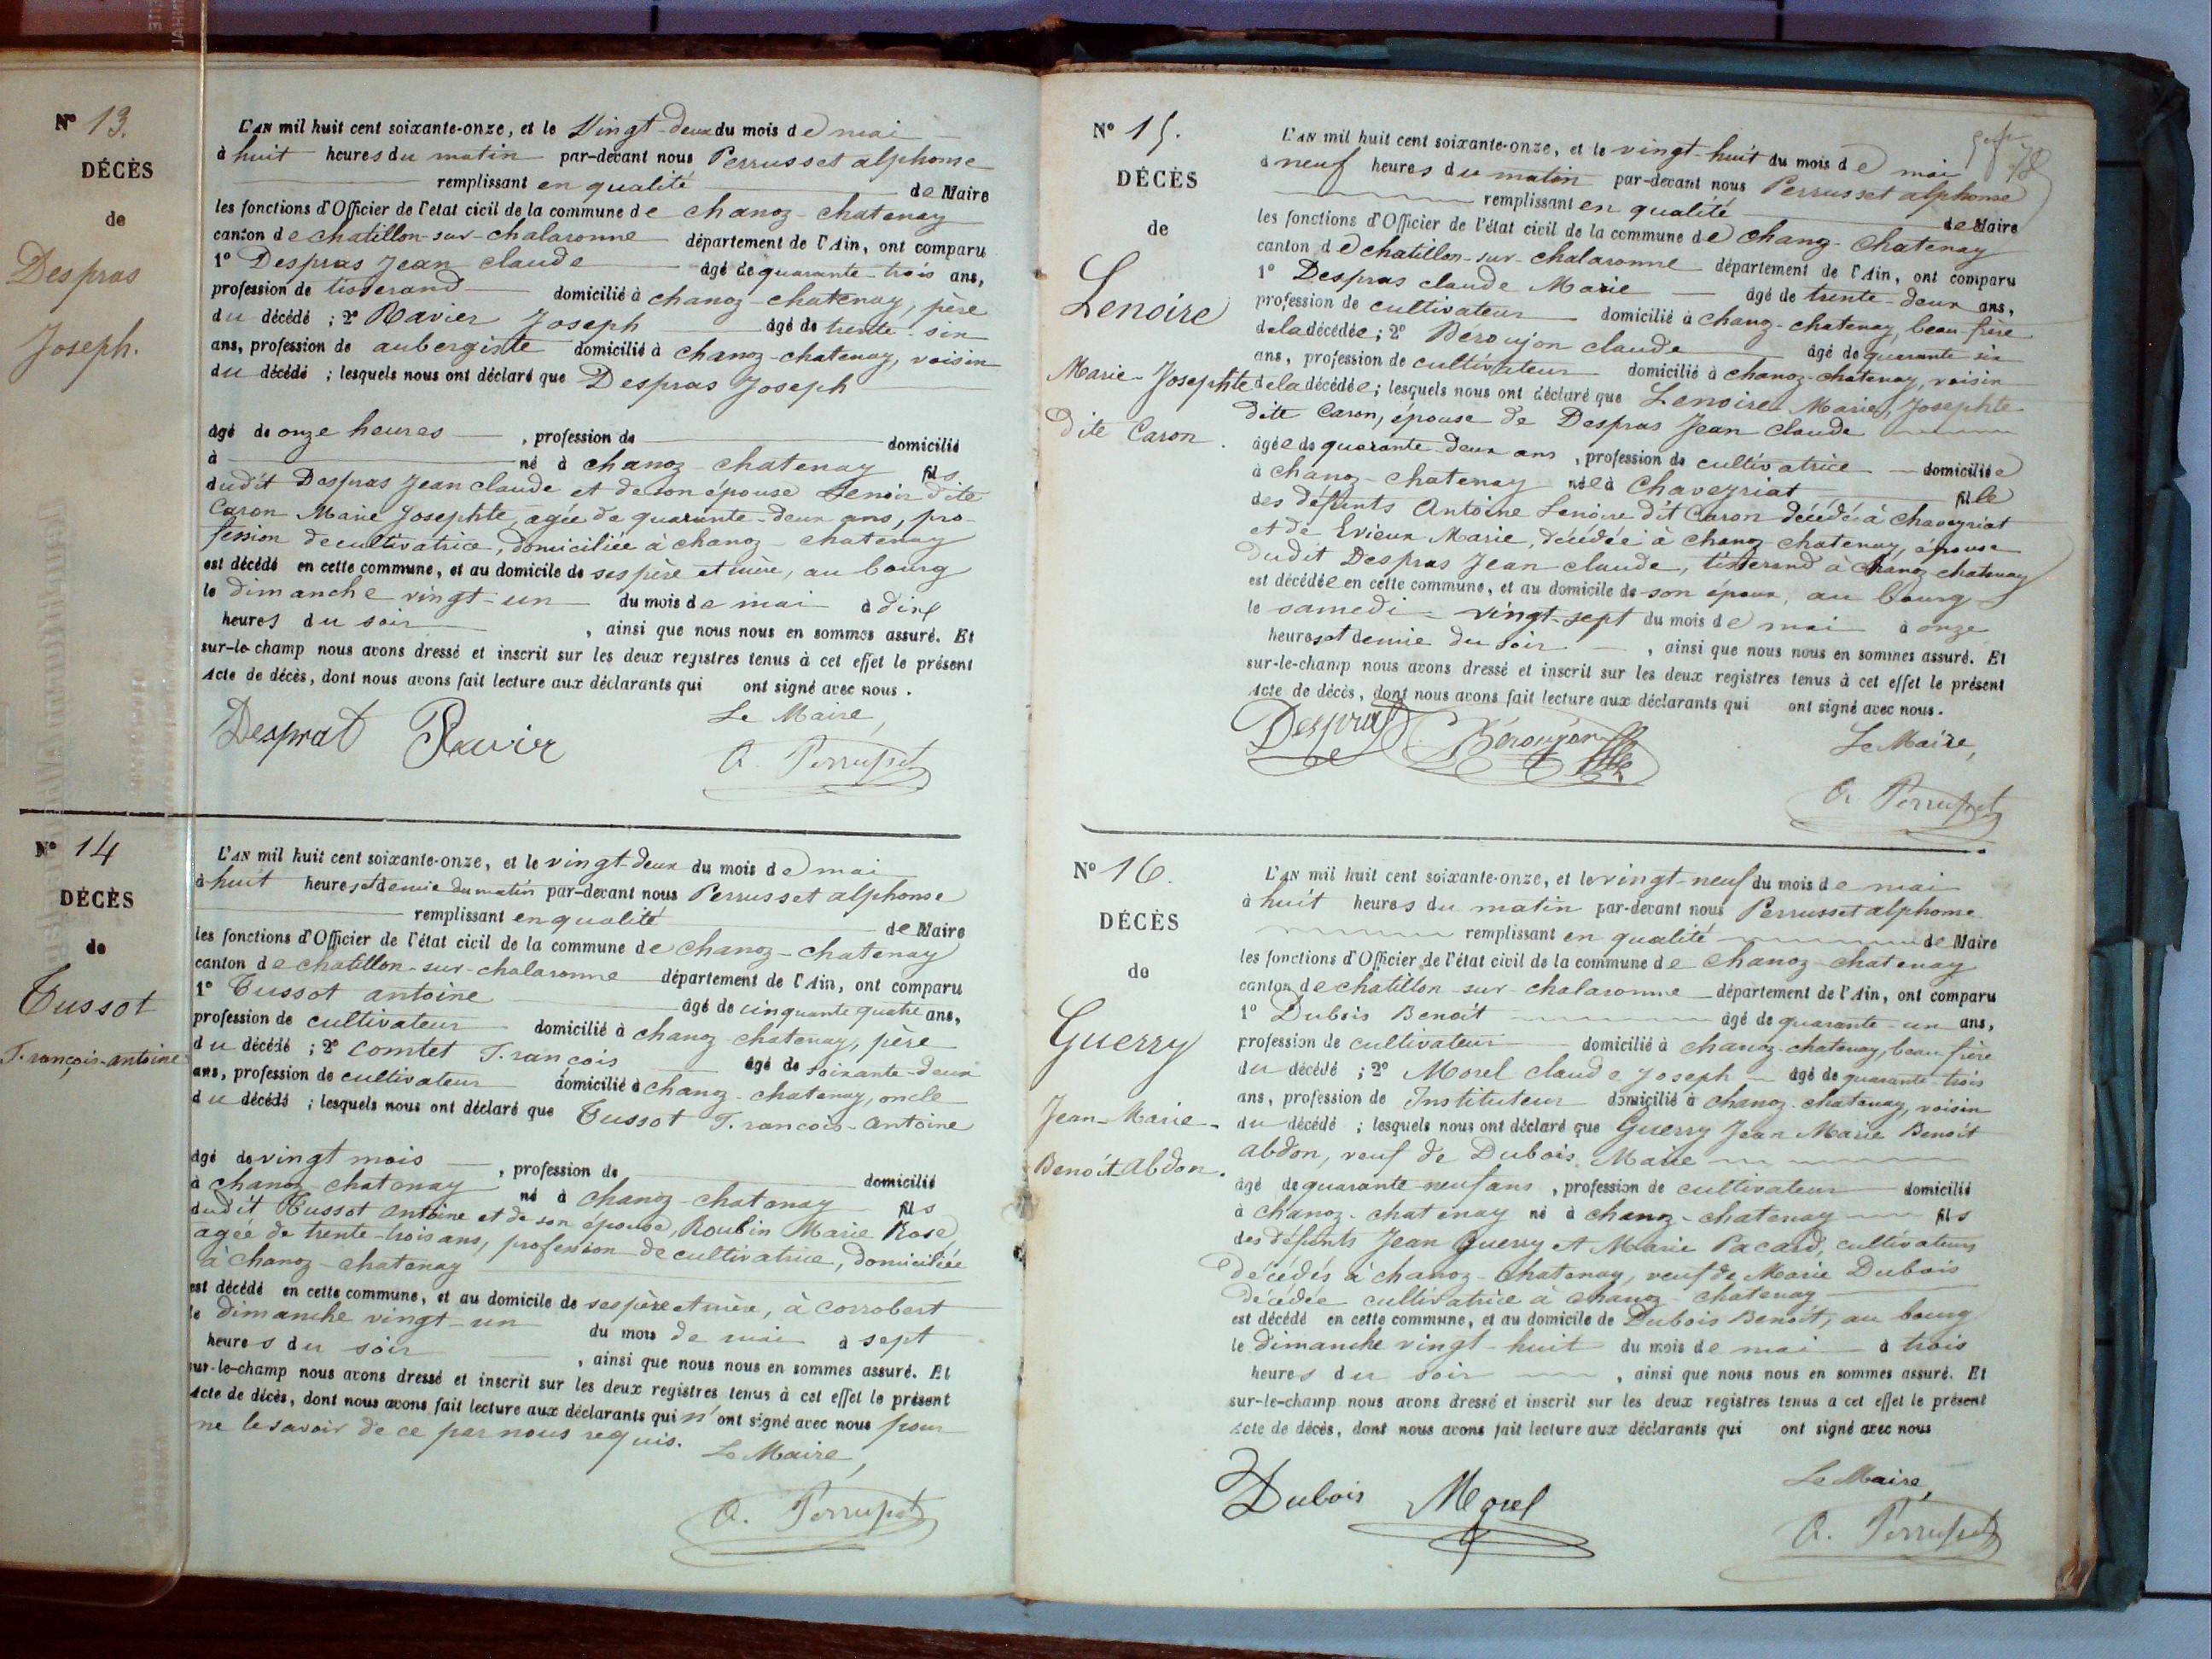 Nº 13.
DÉCÈS
de
Despras
Joseph.
L'AN mil huit cent soixante-onze, et le Vingt-deux du mois de mai
à huit heures du matin par-devant nous Perrusset alphonse
remplissant en qualité de Maire
les fonctions d'Officier de l'état civil de la commune de chanoz-chatenay
canton de chatillon-sur-chalaronne département de l'Ain, ont comparu
1º Despras Jean claude âgé de quarante-trois ans,
profession de tisserand domicilié à chanoz-chatenay, père
du décédé ; 2º Ravier Joseph âgé de trente-six
ans, profession de aubergiste domicilié à chanoz-chatenay, voisin
du décédé ; lesquels nous ont déclaré que Despras Joseph
âgé de onze heures , profession de domicilié
à né à chanoz-chatenay fils
dudit Despras Jean claude et de son épouse Lenoir dite
Caron Marie Josephte, agée de quarante-deux ans, pro-
fession de cultivatrice, domiciliée à chanoz-chatenay
est décédé en cette commune, et au domicile de ses père et mère, au bourg
le dimanche vingt-un du mois de mai à dix
heures du soir , ainsi que nous nous en sommes assuré. Et
sur-le-champ nous avons dressé et inscrit sur les deux registres tenus à cet effet le présent
Acte de décès, dont nous avons fait lecture aux déclarants qui ont signé avec nous .
Le Maire,
Desprat Ravier A. Perrusset
Nº 14
DÉCÈS
de
Tussot
François-antoine
L'AN mil huit cent soixante-onze, et le vingt-deux du mois de mai
à huit heures et demie du matin par-devant nous Perrusset alphonse
remplissant en qualité de Maire
les fonctions d'Officier de l'état civil de la commune de chanoz-chatenay
canton de chatillon-sur-chalaronne département de l'Ain, ont comparu
1º Tussot antoine âgé de cinquante quatre ans,
profession de cultivateur domicilié à chanoz-chatenay, père
du décédé ; 2º comtet François âgé de soixante-deux
ans, profession de cultivateur domicilié à chanoz-chatenay, oncle
du décédé ; lesquels nous ont déclaré que Tussot François-Antoine
âgé de vingt mois , profession de domicilié
à chanoz-chatenay né à chanoz-chatenay fils
dudit Tussot Antoine et de son épouse, Roubin Marie Rose,
agée de trente-trois ans, profession de cultivatrice, domiciliée
à chanoz-chatenay
est décédé en cette commune, et au domicile de ses père et mère, à corrobert
le dimanche vingt-un du mois de mai à sept
heures du soir , ainsi que nous nous en sommes assuré. Et
sur-le-champ nous avons dressé et inscrit sur les deux registres tenus à cet effet le présent
Acte de décès, dont nous avons fait lecture aux déclarants qui n'ont signé avec nous pour
ne le savoir de ce par nous requis.
Le Maire,
A. Perrusset
Nº 15.
DÉCÈS
de
Lenoire
Marie-Josephte
dite Caron.
L'AN mil huit cent soixante-onze, et le vingt-huit du mois de mai
à neuf heures du matin par-devant nous Perrusset alphonse
remplissant en qualité de Maire
les fonctions d'Officier de l'état civil de la commune de chanoz-chatenay
canton de chatillon-sur-chalaronne département de l'Ain, ont comparu
1º Despras claude Marie âgé de trente-deux ans,
profession de cultivateur domicilié à chanoz-chatenay, beau-frère
de la décédée ; 2º Béroujon claude âgé de quarante six
ans, profession de cultivateur domicilié à chanoz-chatenay, voisin
de la décédée ; lesquels nous ont déclaré que Lenoire Marie, Josephte
dite Caron, épouse de Despras Jean claude
âgée de quarante-deux ans , profession de cultivatrice domiciliée
à chanoz-chatenay née à Chaveyriat fille
des défunts Antoine Lenoire dit Caron décédé à chaveyriat
et de Evieux Marie, décédée à chanoz chatenay, épouse
dudit Despras Jean claude, tisserand à chanoz chatenay
est décédée en cette commune, et au domicile de son époux, au bourg
le samedi vingt-sept du mois de mai à onze
heures et demie du soir , ainsi que nous nous en sommes assuré. Et
sur-le-champ nous avons dressé et inscrit sur les deux registres tenus à cet effet le présent
Acte de décès, dont nous avons fait lecture aux déclarants qui ont signé avec nous.
Le Maire,
Despras C. Béroujon
A. Perrusset
Nº 16.
DÉCÈS
de
Guerry
Jean-Marie-
Benoît Abdon.
L'AN mil huit cent soixante-onze, et le vingt-neuf du mois de mai
à huit heures du matin par-devant nous Perrusset alphonse
remplissant en qualité de Maire
les fonctions d'Officier de l'état civil de la commune de chanoz-chatenay
canton de chatillon-sur-chalaronne département de l'Ain, ont comparu
1º Dubois Benoît âgé de quarante-un ans,
profession de cultivateur domicilié à chanoz-chatenay, beau frère
du décédé ; 2º Morel claude Joseph âgé de quarante-trois
ans, profession de Instituteur domicilié à chanoz-chatenay, voisin
du décédé ; lesquels nous ont déclaré que Guerry Jean Marie Benoît
Abdon, veuf de Dubois Marie
âgé de quarante-neuf ans , profession de cultivateur domicilié
à chanoz-chatenay né à chanoz-chatenay fils
des défunts Jean Guerry et Marie Pacard, cultivateurs
décédés à chanoz-chatenay, veuf de Marie Dubois
décédée cultivatrice à chanoz-chatenay
est décédé en cette commune, et au domicile de Dubois Benoît, au bourg
le dimanche vingt-huit du mois de mai à trois
heures du soir , ainsi que nous nous en sommes assuré. Et
sur-le-champ nous avons dressé et inscrit sur les deux registres tenus à cet effet le présent
Acte de décès, dont nous avons fait lecture aux déclarants qui ont signé avec nous
Le Maire,
Dubois Morel
A. Perrusset